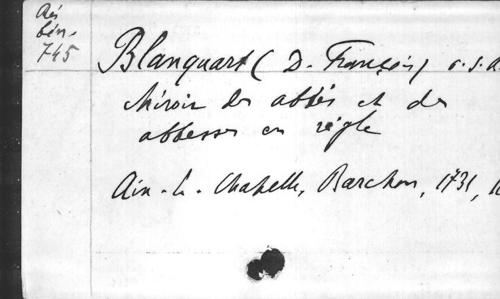 Rés
bén.
745
Blanquart (D. François) o.s.a
Miroir des abbés et des
abbesses en règle
Aix-l.-Chapelle, Barchon, 1731, 1